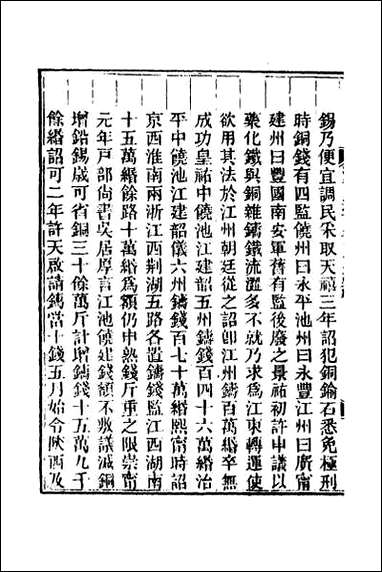 錫乃便宜調民采取天禧三年詔犯銅鍮石悉免極刑
時銅錢有四監饒州曰永平池州曰永豐江州曰廣寧
建州曰豐國南安軍舊有監後廢之景祐初許申議以
藥化鐵與銅雜鑄鐵流澀多不就乃求爲江東轉運使
欲用其法於江州朝廷從之詔卽江州鑄百萬緡卒無
成功皇祐中饒池江建韶五州鑄錢百四十六萬緡治
平中饒池江建韶儀六州鑄錢百七十萬緡熙甯時詔
京西淮南兩浙江西荆湖五路各置鑄錢監江西湖南
十五萬緡餘路十萬緡爲額仍申熟錢斤重之限崇甯
元年戶部尚書吳居厚言江池饒建錢額不敷議減銅
增鉛錫歲可省銅三十餘萬斤計增鑄錢十五萬九千
餘緡詔可二年許天啟請鑄當十錢五月始令陝西及